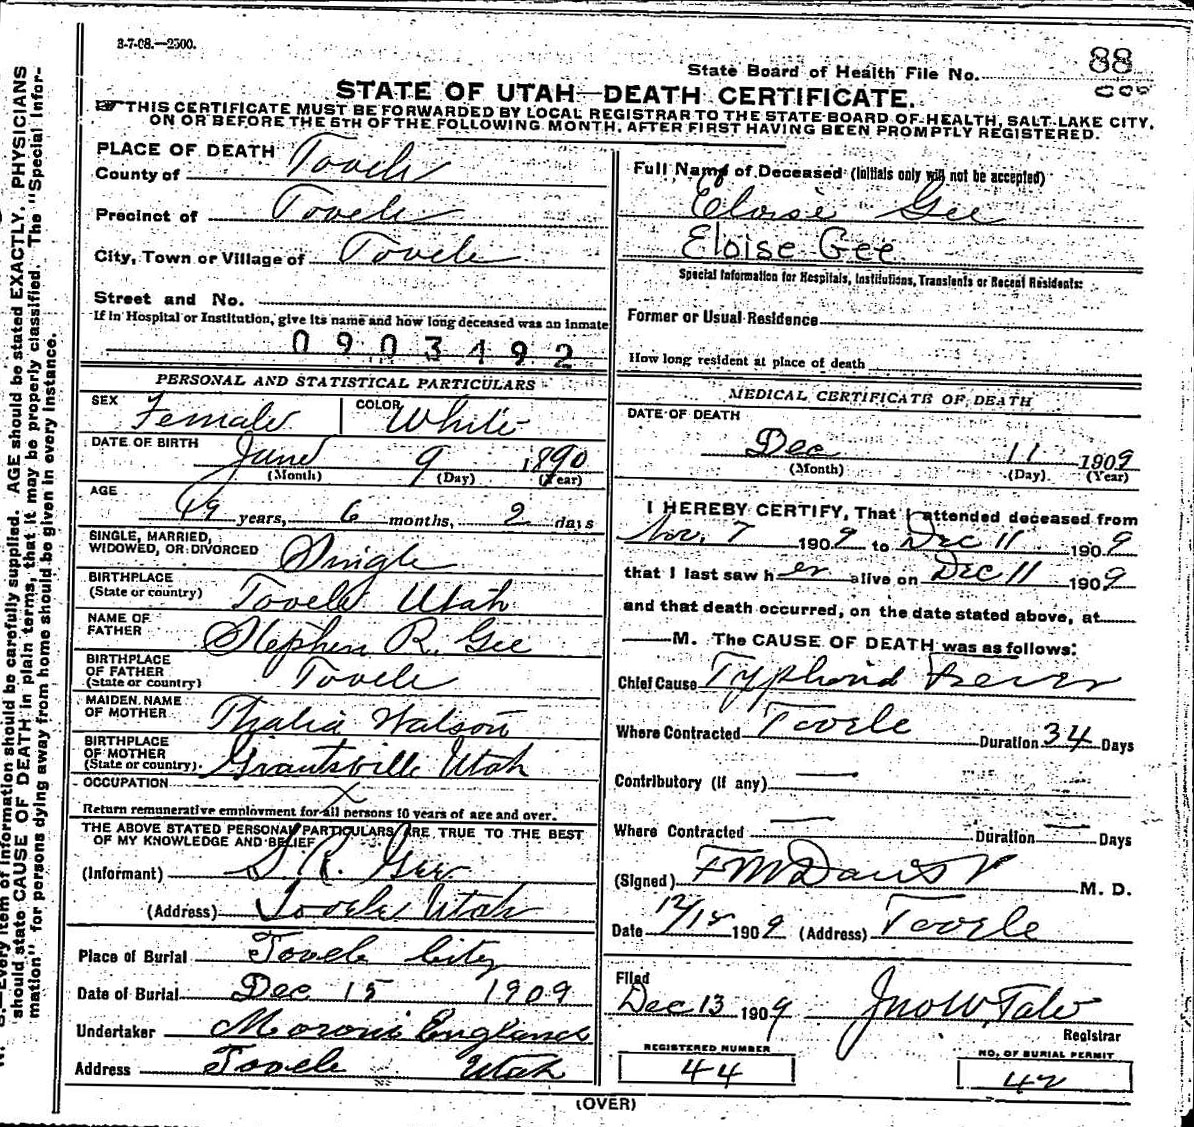 3-7-08.—2500.
88
State Board of Health File No.
STATE OF UTAH—DEATH CERTIFICATE.
THIS CERTIFICATE MUST BE FORWARDED BY LOCAL REGISTRAR TO THE STATE BOARD OF HEALTH, SALT LAKE CITY,
ON OR BEFORE THE 5TH OF THE FOLLOWING MONTH, AFTER FIRST HAVING BEEN PROMPTLY REGISTERED.
PLACE OF DEATH
County of Tooele
Precinct of Tooele
City, Town or Village of Tooele
Street and No.
If in Hospital or Institution, give its name and how long deceased was an inmate
0903492
PERSONAL AND STATISTICAL PARTICULARS
SEX Female COLOR White
DATE OF BIRTH June 9 1890
(Month) (Day) (Year)
AGE 19 years, 6 months, 2 days
SINGLE, MARRIED,
WIDOWED, OR DIVORCED Single
BIRTHPLACE
(State or country) Tooele Utah
NAME OF
FATHER Stephen R. Gee
BIRTHPLACE
OF FATHER
(State or country) Tooele
MAIDEN NAME
OF MOTHER Thalia Watson
BIRTHPLACE
OF MOTHER
(State or country). Grantsville Utah
OCCUPATION
Return remunerative employment for all persons 10 years of age and over.
THE ABOVE STATED PERSONAL PARTICULARS ARE TRUE TO THE BEST
OF MY KNOWLEDGE AND BELIEF
(Informant) S. R. Gee
(Address) Tooele Utah
Place of Burial Tooele City
Date of Burial Dec 15 1909
Undertaker Moroni England
Address Tooele Utah
Full Name of Deceased (Initials only will not be accepted)
Eloise Gee
Eloise Gee
Special Information for Hospitals, Institutions, Transients or Recent Residents:
Former or Usual Residence
How long resident at place of death
MEDICAL CERTIFICATE OF DEATH
DATE OF DEATH
Dec 11 1909
(Month) (Day) (Year)
I HEREBY CERTIFY, That I attended deceased from
Nov. 7 1909 to Dec 11 1909
that I last saw her alive on Dec 11 1909
and that death occurred, on the date stated above, at
M. The CAUSE OF DEATH was as follows:
Chief Cause Typhoid Fever
Where Contracted Tooele Duration 34 Days
Contributory (if any)
Where Contracted Duration Days
(Signed) F M Davis M. D.
Date 12/12 1909 (Address) Tooele
Filed
Dec 13 1909 Jno W Tate
Registrar
REGISTERED NUMBER
44
NO. OF BURIAL PERMIT
42
(OVER)
B.—Every item of information should be carefully supplied. AGE should be stated EXACTLY. PHYSICIANS
should state CAUSE OF DEATH in plain terms, that it may be properly classified. The "Special Infor-
mation" for persons dying away from home should be given in every instance.